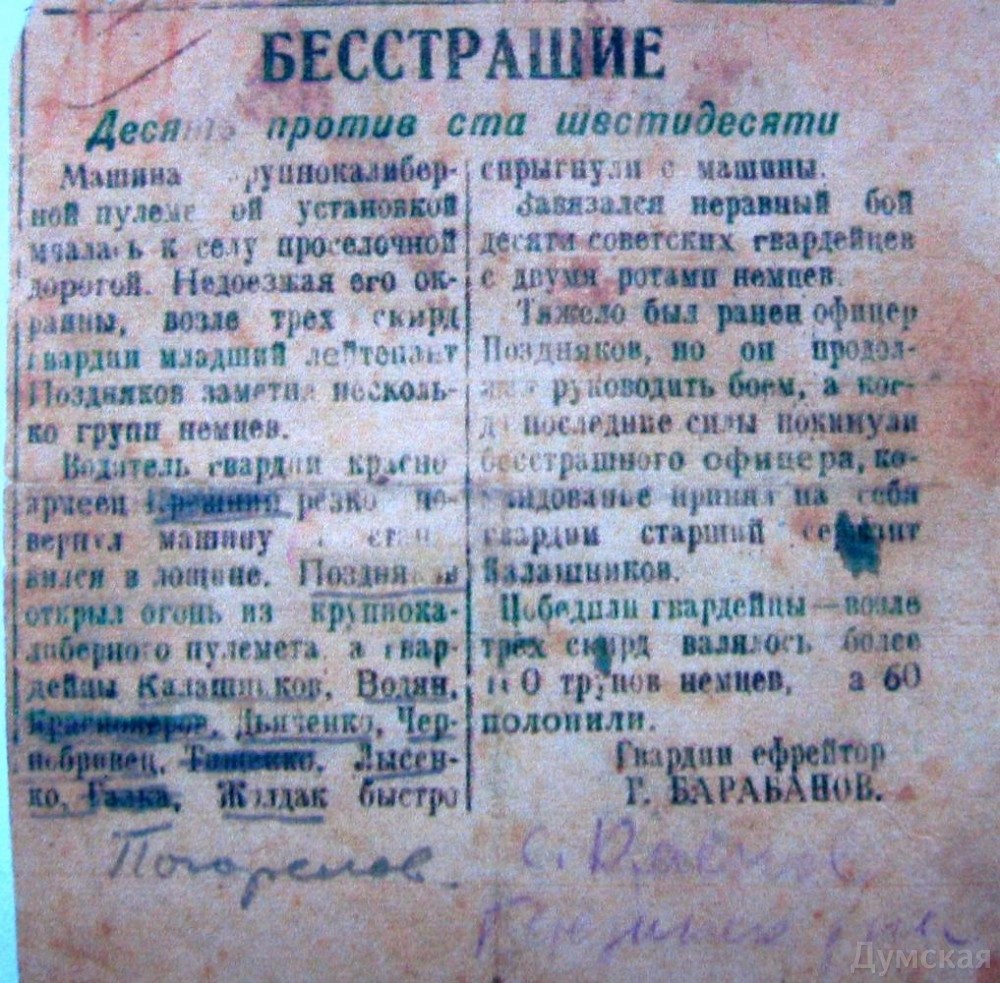 БЕССТРАШИЕ
Десять против ста шестидесяти
Машина крупнокалибер-
ной пулеметной установкой
мчалась к селу проселочной
дорогой. Недоезжая его ок-
раины, возле трех скирд
гвардии младший лейтенант
Поздняков заметил несколь-
ко групп немцев.
Водитель гвардии красно
армеец резко по-
вернул машину и стано-
вился в лощине. Поздняков
открыл огонь из крупнока-
либерного пулемета, а гвар-
дейцы Калашников, Водян,
Красноперов, Дьяченко, Чер-
нобривец, Тищенко, Лысен-
ко, Галка, Жолдак быстро
спрыгнули с машины.
Завязался неравный бой
десяти советских гвардейцев
с двумя ротами немцев.
Тяжело был ранен офицер
Поздняков, но он продол-
жал руководить боем, а ког-
да последние силы покинули
бесстрашного офицера, ко-
мандованье принял на себя
гвардии старший сержант
Калашников.
Победили гвардейцы—возле
трех скирд валялось более
100 трупов немцев, а 60
полонили.
Гвардии ефрейтор
Г. БАРАБАНОВ.
Погорелов.
с.
Думская